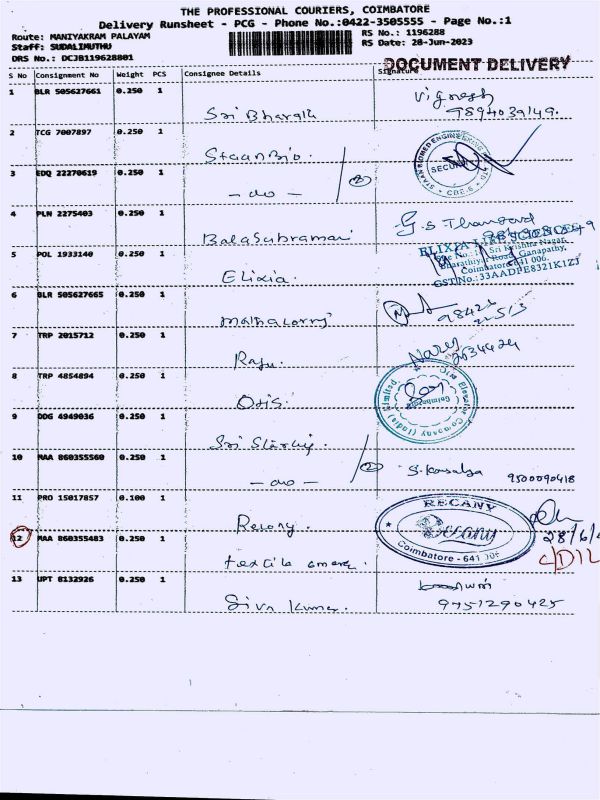 THE PROFESSIONAL COURIERS, COIMBATORE
Delivery Runsheet - PCG - Phone No.:0422-3505555 - Page No.:1
Route: MANIYAKRAM PALAYAM
RS No.: 1196288
Staff: SUDALIMUTHU
RS Date: 28-Jun-2023
DRS No.: DCJB119628801
DOCUMENT DELIVERY
S No Consignment No Weight PCS Consignee Details Signature
1 BLR 505627661 0.250 1
Sri Bharath
Vignesh
9894039149.
2 TCG 7007897 0.250 1
StaanBio.
SECURITY
3 EDQ 22270619 0.250 1
- do -
2
4 PLN 2275403 0.250 1
Balasubramani
5 POL 1933140 0.250 1
Elixia.
ELIXIA LIFE SCIENCES
Sri Krishna Nagar,
Bharathiyar Road, Ganapathy,
Coimbatore-641 006.
GST No.: 33AADFE8321K1ZJ
6 BLR 505627665 0.250 1
7 TRP 2015712 0.250 1
Raju.
8 TRP 4854894 0.250 1
Otis.
Otis Elevator Company (India) Limited
Coimbatore
9 DDG 4949036 0.250 1
10 MAA 860355560 0.250 1
- do -
2
S. Kousalya
9500090418
11 PRO 15017857 0.100 1
Recany.
RECANY
Recany
Coimbatore - 641 006
28/6/
12 MAA 860355483 0.250 1
textile
13 UPT 8132926 0.250 1
Siva Kumar.
9751290425